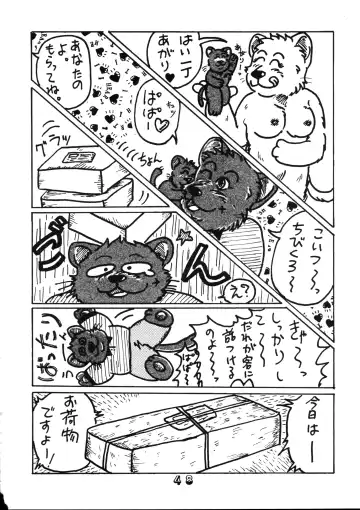 はい一丁
あがり♡
あなたの
よ。
もらってね。
ぱぱー♡
ちょん
グラッ
こいつ〜っ
ちびくろ〜
ごいん
え?
ぎ〜っ
しっかりし
て〜〜
だれが客に
詰つける
のよ〜っ
ぱぱー
ばったり
今日はー
お荷物
ですよー!
48